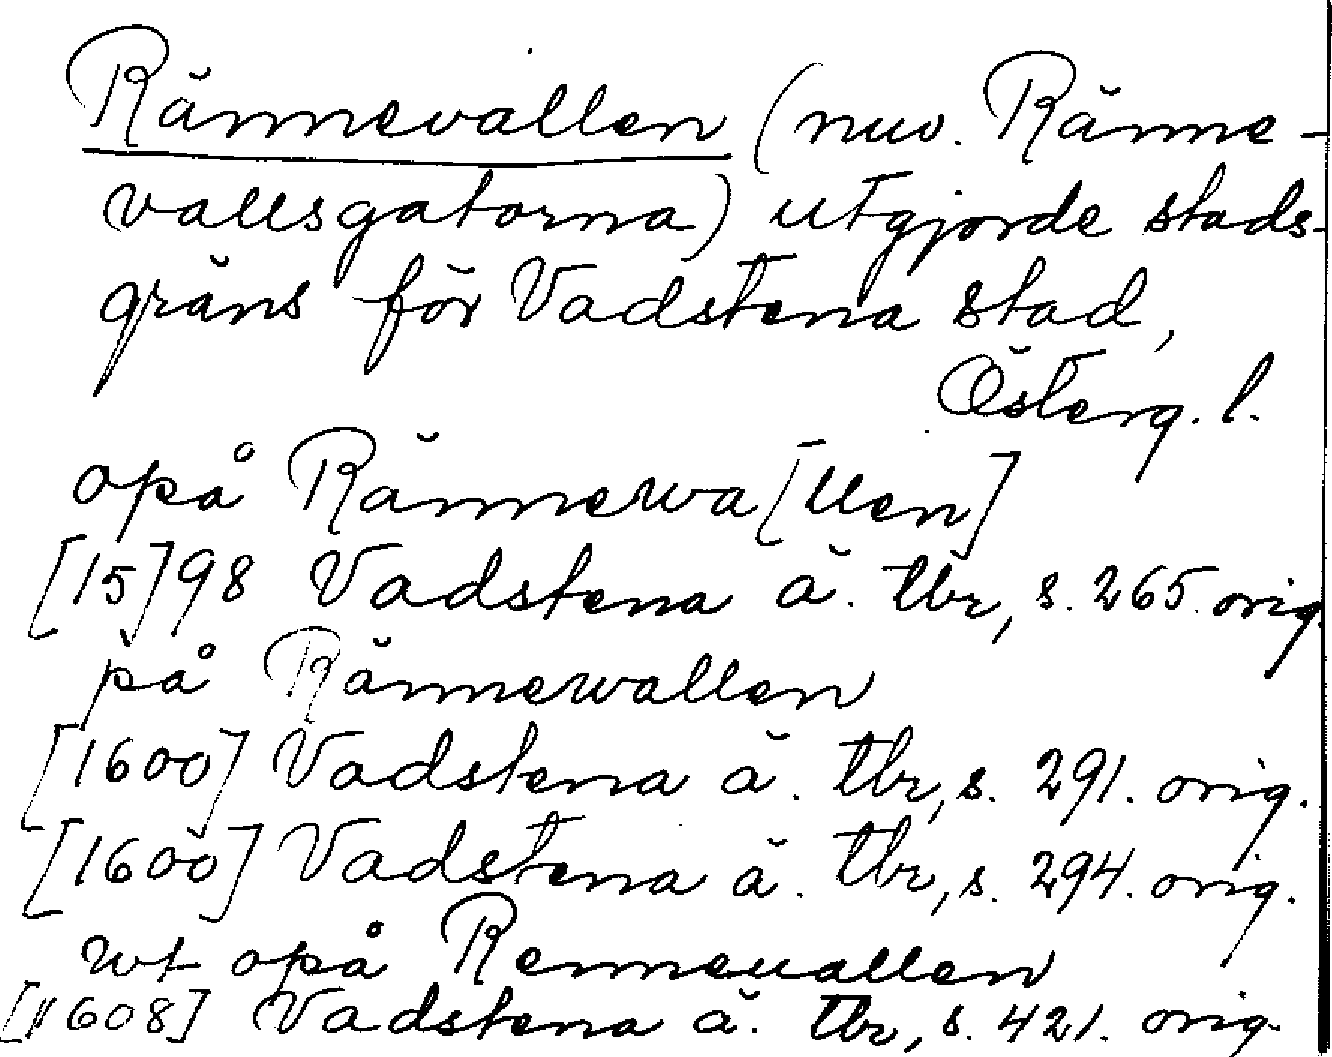 Rännevallen (nuv. Ränne-
vallsgatorna) utgjorde stads-
gräns för Vadstena stad,
Österg. l.
opå Rännewa[llen]
[15]98 Vadstena ä. tbr, s. 265. orig.
på Rännewallen
[1600] Vadstena ä. tbr, s. 291. orig.
[1600] Vadstena ä. tbr, s. 294. orig.
wt opå Renneuallen
[1608] Vadstena ä. tbr, s. 421. orig.